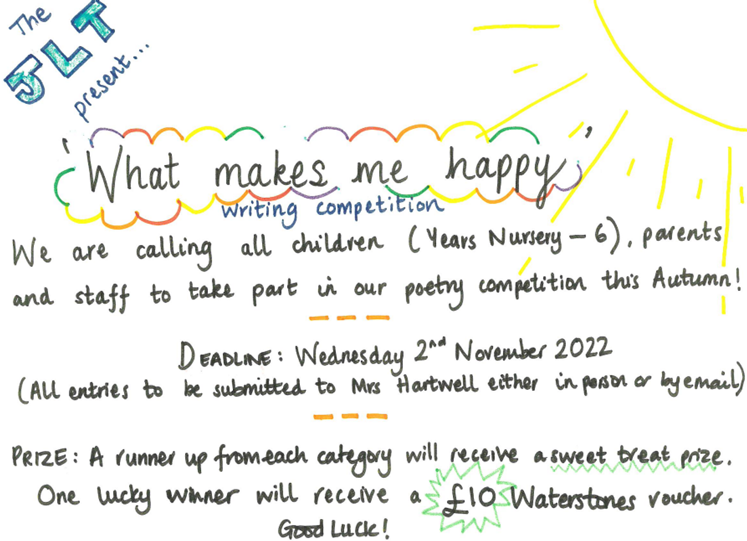 The
JLT
present...
'What makes me happy'
writing competition
We are calling all children (Years Nursery - 6), parents
and staff to take part in our poetry competition this Autumn!
DEADLINE: Wednesday 2nd November 2022
(All entries to be submitted to Mrs Hartwell either in person or by email)
PRIZE: A runner up from each category will receive a sweet treat prize.
One lucky winner will receive a £10 Waterstones voucher.
Good Luck!